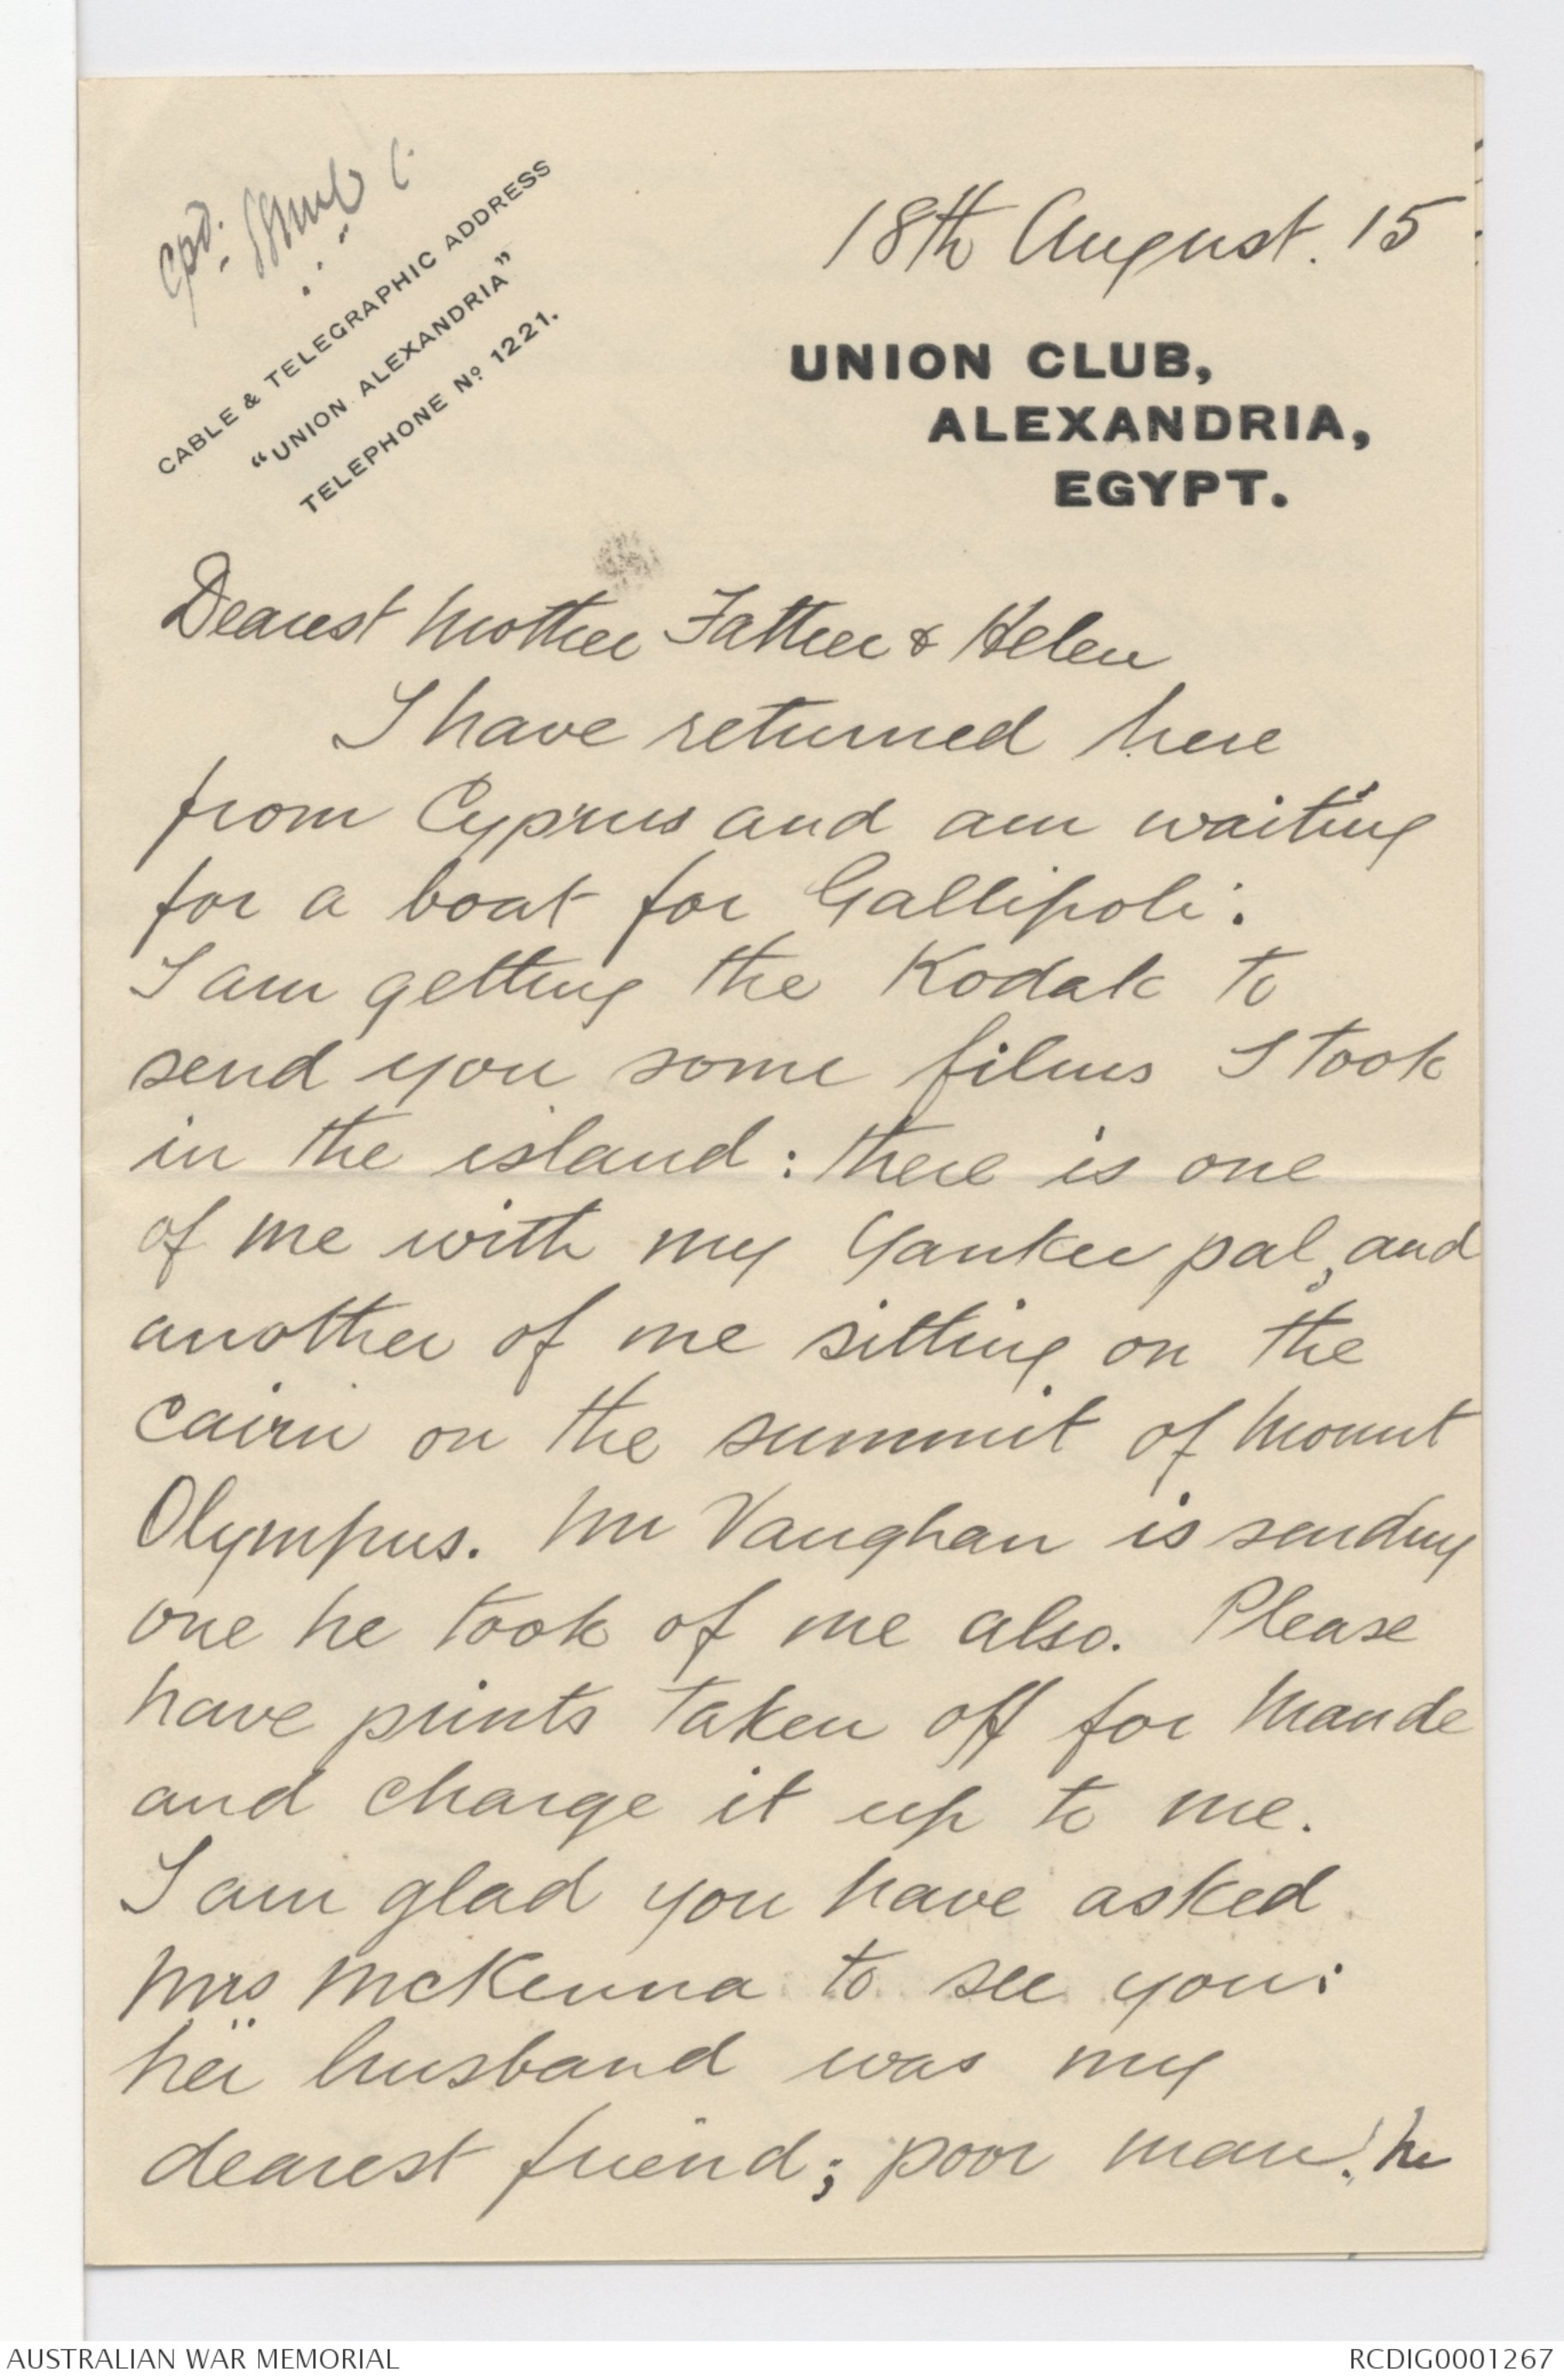 CABLE & TELEGRAPHIC ADDRESS
"UNION ALEXANDRIA"
TELEPHONE No 1221.
18th August. 15
UNION CLUB,
ALEXANDRIA,
EGYPT.
Dearest Mother Father & Helen
I have returned here
from Cyprus and am waiting
for a boat for Gallipoli:
I am getting the Kodak to
send you some films I took
in the island: there is one
of me with my Yankee pal, and
another of me sitting on the
cairn on the summit of Mount
Olympus. Mr Vaughan is sending
one he took of me also. Please
have prints taken off for Maude
and charge it up to me.
I am glad you have asked
Mrs McKenna to see you:
her husband was my
dearest friend; poor man! he
AUSTRALIAN WAR MEMORIAL
RCDIG0001267